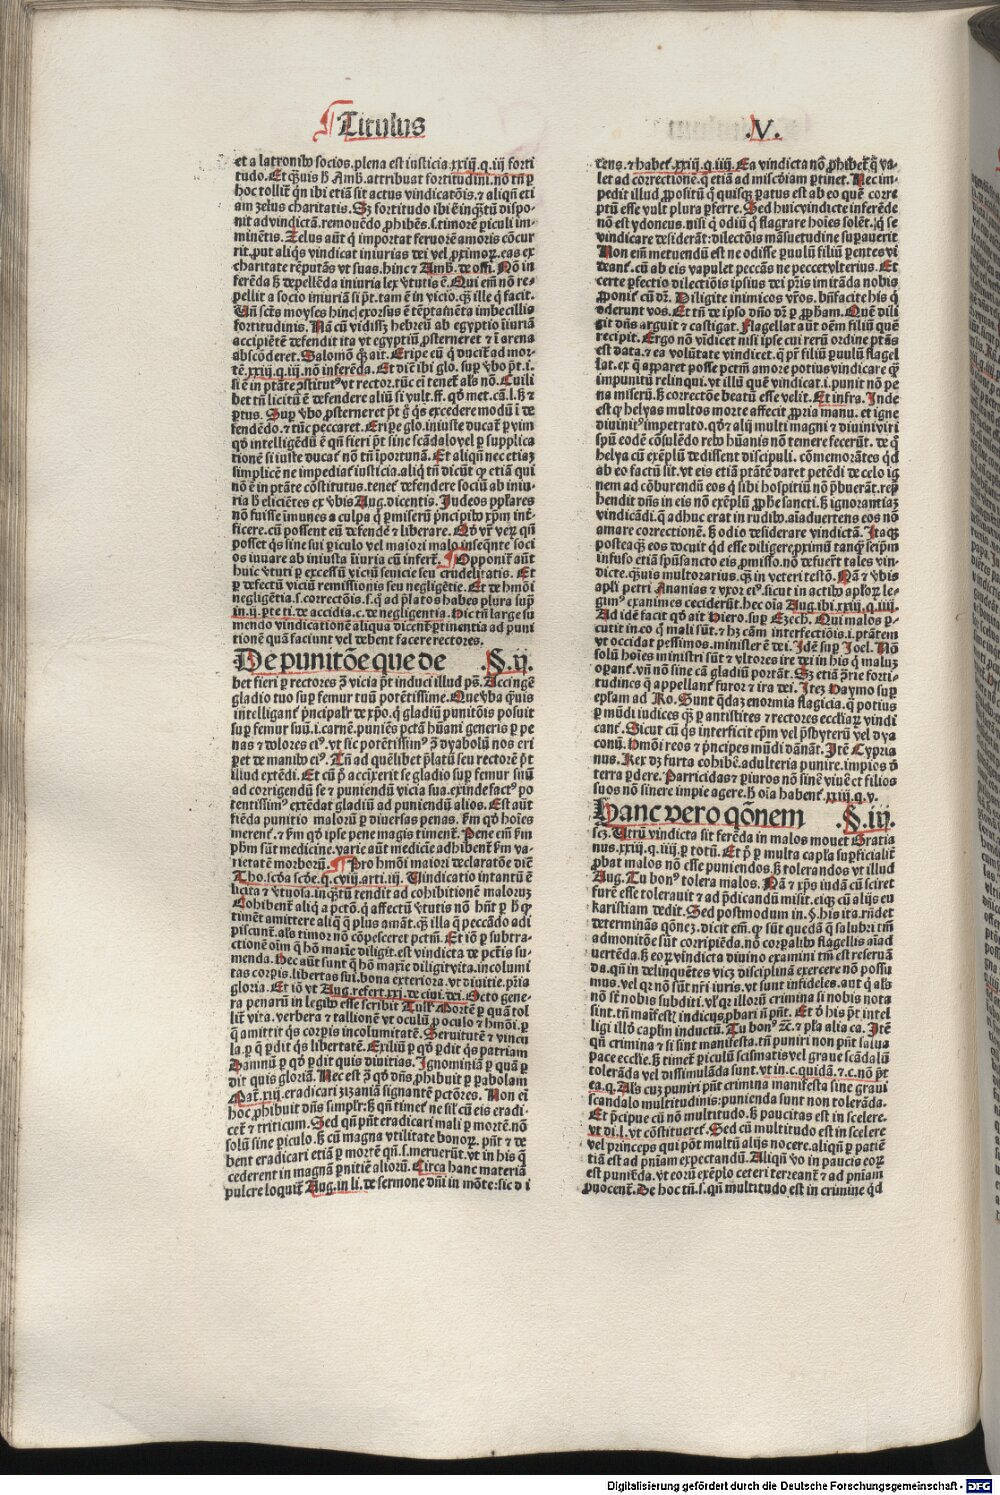 Titulus
.V.
et a latronibꝰ socios. plena est iusticia. xxiij. q. iij. forti
tudo. Et qͣuis h̄ Amb. attribuat fortitudini. nō tn̄ ꝑ
hoc tollit᷑ qn̄ ibi etiā sit actus vindicatōis. ⁊ aliqn̄ eti
am zelus charitatis. Sꝫ fortitudo ibi ē inqͣtū dispo-
nit ad vindictā. remouēdo ꝓhibēs. s. timorē ꝑiculi im-
minētis. Zelus aūt qͥ importat feruorē amoris cōcur
rit. put aliqͥs vindicat iniurias dei vel ꝓximoꝝ. eas ex
charitate reputās vt suas. hinc ⁊ Amb. de offi. Nō in
ferēda sꝫ depellēda iniuria lex vtutis ē. Qui em̄ nō re-
pellit a socio iniuriā si pt̄. tam ē in vicio. qͣꝫ ille qͥ facit.
Un̄ sct̄s moyses hinc exorsus ē tēptamēta imbecillis
fortitudinis. Nā cū vidissꝫ hebreū ab egyptio iniuriā
accipiētē defendit ita vt egyptiū ꝓsterneret ⁊ ī arena
absconderet. Salomō qͦꝫ ait. Eripe eū qͥ ducit᷑ ad mor-
tē. xxiij. q. iij. nō inferēda. Et dic̄ ibi glo. sup vbo pt̄. i.
si ē in ptāte ꝯstitutꝰ vt rector. tūc em̄ tenet᷑ als nō. Cuili
bet tn̄ licitū ē defendere aliū si vult. ff. qd̓ met. cā. l. sꝫ ⁊
ꝑtus. Sup vbo ꝓsterneret pt̄ gͦ qͥs excedere modū ī de
fendēdo. ⁊ tūc peccaret. Eripe glo. iniuste ducat᷑ ꝑ vim
qd̓ intelligēdū ē qn̄ fieri pt̄ sine scādalo vel ꝑ supplica
tionē si iuste ducat᷑ nō tn̄ īportunā. Et aliqn̄ nec etiaꝫ
simplicē ne impediat᷑ iusticia. aliqͥ tn̄ dicūt qꝫ etiā qui
nō ē in ptāte cōstitutus. tenet᷑ defendere sociū ab iniu-
ria h̄ elicientes ex vbis Aug. dicentis. Judeos pplares
nō fuisse imunes a culpa qͥ ꝑmiserū pncipibꝰ xpm̄ int̓-
ficere. cū possent eū defende̓ ⁊ liberare. Qd̓ vr̄ veꝝ qn̄
posset qͥs sine sui ꝑiculo vel maiori malo inseqn̄te soci
os iuuare ab iniusta iniuria cū infert᷑. Opponit᷑ aūt
huic vtuti ꝑ excessū viciū seuicie seu crudelitatis. Et
ꝑ defectū viciū remissionis seu negligētie. Et de hmōi
negligētia. s. correctōis. s. q̄ ad platos habes plura supͣ
in. ij. pte ti. de accidia. c. de negligentia. Hic tn̄ large su
mendo vindicationē aliqua dicent᷑ ꝑtinentia ad puni
tionē quā faciunt vel debent facere rectores.
De punitōe que de .§.ij.
bet fieri ꝑ rectores ꝯ vicia pt̄ induci illud ps̄. Accinge
gladio tuo sup femur tuū potētissime. Que vba qͣuis
intelligant᷑ pncipalr̄ de xpo. qͥ gladiū punitōis posuit
sup femur suū. i. carnē. puniēs pctā hūani generis ꝑ pe
nas ⁊ dolores eiꝰ. vt sic potētissimꝰ ꝯ dyabolū nos eri
pet de manibꝰ eiꝰ. Tn̄ ad quēlibet platū seu rectorē pt̄
illud extēdi. Et cū pͥ accixerit se gladio sup femur suū
ad corrigendū se ⁊ puniendū vicia sua. exinde factꝰ po
tentissimꝰ extēdat gladiū ad puniendū alios. Est aūt
fiēda punitio maloꝝ ꝑ diuersas penas. scd̓m qd̓ hoīes
merent᷑. ⁊ scd̓m qd̓ ipse pene magis timent᷑. Pene em̄ scd̓m
phm̄ sūt medicine. varie aūt medicie adhibent᷑ scd̓m va-
rietatē morboꝝ. Pro hmōi maiori declaratōe dic̄
Tho. scd̓a scd̓e. q. cviij. arti. iij. Uindicatio intantū ē
licita ⁊ vtuosa. inqͣtū tendit ad cohibitionē maloꝝ.
Cohibent᷑ aliqͥ a pctō. qͥ affectū vtutis nō hn̄t ꝑ h̄ qꝫ
timēt amittere aliqͥ q̄ plus amāt. qͣꝫ illa q̄ peccādo adi
piscunt᷑. als timor nō cōpesceret pctm̄. Et iō ꝑ subtra-
ctionē oīm q̄ hō maxie diligit. est vindicta de pctīs su-
menda. Hec aūt sunt q̄ hō maxie diligit vita. incolumi
tas corpis. libertas sui. bona exteriora. vt diuitie. pria
gloria. Et iō vt Aug. refert. xxj. de ciui. dei. Octo gene-
ra penarū in legibꝰ esse scribit Tull᷑. Mortē ꝑ quā tol
lit᷑ vita. verbera ⁊ tallionē vt oculū ꝓ oculo ⁊ hmōi. ꝑ
q̄ amittit qͥs corpis incolumitatē. Seruitutē ⁊ vincu
la. ꝑ q̄ ꝑdit qͥs libertatē. Exiliū ꝑ qd̓ ꝑdit qͥs patriam
Damnū ꝑ qd̓ ꝑdit quis diuitias. Ignominiā ꝑ quā ꝑ
dit quis gloriā. Nec est ꝯ qd̓ dn̄s ꝓhibuit ꝑ parabolam
Mat᷑. xiij. eradicari zizaniā signantē pctōres. Non em̄
hoc ꝓhibuit dn̄s simplr̄: sꝫ qn̄ timet᷑ ne sil᷑ cū eis eradi-
cet᷑ ⁊ triticum. Sed qn̄ pn̄t eradicari mali ꝑ mortē. nō
solū sine ꝑiculo. sꝫ cū magna vtilitate bonoꝝ. pn̄t ⁊ de
bent eradicari etiā ꝑ mortē qn̄. s. meruerūt. vt in his q̄
cederent in magnā pnitiē alioꝝ. Circa hanc materiā
pulcre loquit᷑ Aug. in li. de sermone dn̄i in mōte: sic d i
cens. ⁊ habet᷑. xxiij. q. iiij. Ea vindicta nō ꝓhibet᷑ q̄ va-
let ad correctionē. q̄ etiā ad misc̄diam ptinet. Nec im-
pedit illud ꝓpositū qͦ quisqꝫ ꝑatus est ab eo quē corre
ptū esse vult plura ꝑferre. Sed huic vindicte inferēde
nō est ydoneus. nisi qͥ odiū qͦ flagrare hoīes solēt. qͥ se
vindicare desiderāt: dilectōis māsuetudine supauerit
Non em̄ metuendū est ne odisse puulū filiū ꝑentes vi
deant᷑. cū ab eis vapulet peccās ne peccet vlterius. Et
certe ꝑfectio dilectiōis ipsius dei pris imitāda nobis
ꝓponit᷑ cū dr̄. Diligite inimicos vr̄os. bn̄facite his qͥ
oderunt vos. Et tn̄ de ipso dn̄o dr̄ ꝑ ꝓpham. Quē dili
git dn̄s arguit ⁊ castigat. Flagellat aūt oēm filiū quē
recipit. Ergo nō vīdicet nisi ipse cui reꝝ ordine ptās
est data. ⁊ ea volūtate vindicet. q̄ pr̄ filiū puulū flagel
lat. ex q̄ apparet posse pctm̄ amore potius vindicare qͣꝫ
impunitū relinqui. vt illū quē vindicat. i. punit nō pe
na miserū. sꝫ correctōe beatū esse velit. Et infra. Inde
est qꝫ helyas multos morte affecit ꝓpria manu. et igne
diuinitꝰ impetrato. qd̓ ⁊ alij multi magni ⁊ diuini viri
spū eodē cōsulēdo rebꝰ hūanis nō temere fecerūt. de qͦ
helya cū exēplū dedissent discipuli. cōmemorātes qd̓
ab eo factū sit. vt eis etiā ptātē daret petēdi de celo ig
nem ad cōburendū eos qͥ sibi hospitiū nō pbuerāt. rep̄
hendit dn̄s in eis nō exēplū ꝓphe sancti. sꝫ ignorantiaꝫ
vindicādi. q̄ adhuc erat in rudibꝰ. aīaduertens eos nō
amare correctionē. sꝫ odio desiderare vindictā. Itaqꝫ
posteaqͣꝫ eos docuit qd̓ esse diligere ꝓximū tanqͣꝫ seipm̄
infuso etiā spūsancto eis ꝓmisso. nō defuerūt tales vin-
dicte. qͣꝫuis multo rarius. qͣꝫ in veteri testō. Nā ⁊ vbis
apli petri Ananias ⁊ vxor eiꝰ. sicut in actibꝰ aploꝝ le-
gimꝰ exanimes ceciderūt. hec oīa Aug. ibi. xxiij. q. iiij.
Ad idē facit qd̓ ait Hiero. sup Ezech. Qui malos ꝑ-
cutit in eo q̄ mali sūt. ⁊ hꝫ cām interfectiōis. i. ptātem
vt occidat pessimos. minister ē dei. Idē sup Joel. Nō
solū hoīes ministri sūt ⁊ vltores ire dei in his qͥ maluꝫ
opant᷑. vn̄ nō sine cā gladiū portāt. Sꝫ etiā ꝯrie forti-
tudines q̄ appellant᷑ furor ⁊ ira dei. Iteꝫ Haymo sup
eplam ad Ro. Sunt qͦdaꝫ enormia flagicia. q̄ potius
ꝑ mūdi iudices qͣꝫ ꝑ antistites ⁊ rectores eccliaꝝ vindi
cant᷑. Sicut cū qͥs interficit epm̄ vel presbyterū vel dya
conū. Hmōi reos ⁊ pncipes mūdi dānāt. Itē Cypria
nus. Rex dꝫ furta cohibē. adulteria punire. impios ꝺ̓
terra ꝑdere. Parricidas ⁊ ꝑiuros nō sinē viuē et filios
suos nō sinere impie agere. h̄ oīa habent᷑. xxiij. q. v.
Hanc vero qōnem .§.iij.
scꝫ. Utrū vindicta sit ferēda in malos mouet Gratia
nus. xxiij. q. iiij. ꝑ totū. Et pͥ ꝑ multa capla supficialit᷑
ꝓbat malos nō esse puniendos. sꝫ tolerandos vt illud
Aug. Tu bonꝰ tolera malos. Nā ⁊ xps iudā cū sciret
furē esse tolerauit ⁊ ad pdicandū misit. eiqꝫ cū alijs eu
karistiam dedit. Sed postmodum in. §. his ita. rn̄det
determinās qōneꝫ. dicit em̄. qꝫ sūt quedā q̄ salubri tm̄
admonitōe sūt corripiēda. nō corpalibꝰ flagellis aīad
uertēda. sꝫ eoꝝ vindicta diuino examini tm̄ est reseruā
da. qn̄ in delinquētes viceꝫ disciplinā exercere nō possu
mus. vel qꝫ nō sūt nr̄i iuris. vt sunt infideles. aut qꝫ als
nō st̄ nobis subditi. vl᷑ qꝫ illoꝝ crimina si nobis nota
sint. tn̄ mafest᷑ indicijs ꝓbari nō pn̄t. Et de his pt̄ intel
ligi illd̓ caplm inductū. Tu bonꝰ ⁊c. ⁊ pla alia ca. Itē
qn̄ crimina ⁊ si sint manifesta. tn̄ puniri non pn̄t salua
pace ecclie. sꝫ timet᷑ ꝑiculū scismatis vel graue scādalū
tolerāda vel dissimulāda sunt. vt in. c. quidā. ⁊ c. nō pt̄
ea. q. Als cuꝫ puniri pn̄t crimina manifesta sine graui
scandalo multitudinis: punienda sunt non tolerāda.
Et pcipue cū nō multitudo. sꝫ paucitas est in scelere.
vt di. l. vt cōstitueret᷑. Sed cū multitudo est in scelere
vel princeps qui pōt multū alijs nocere. aliqn̄ ꝑ patiē
tiā est ad pniam expectandū. Aliqn̄ vo in paucis eoꝝ
est puniēda. vt eoꝝ exēplo ceteri terreant᷑ ⁊ ad pniam
ꝓuocent᷑. De hoc tn̄. s. qn̄ multitudo est in crimine qd̓
Digitalisierung gefördert durch die Deutsche Forschungsgemeinschaft - DFG